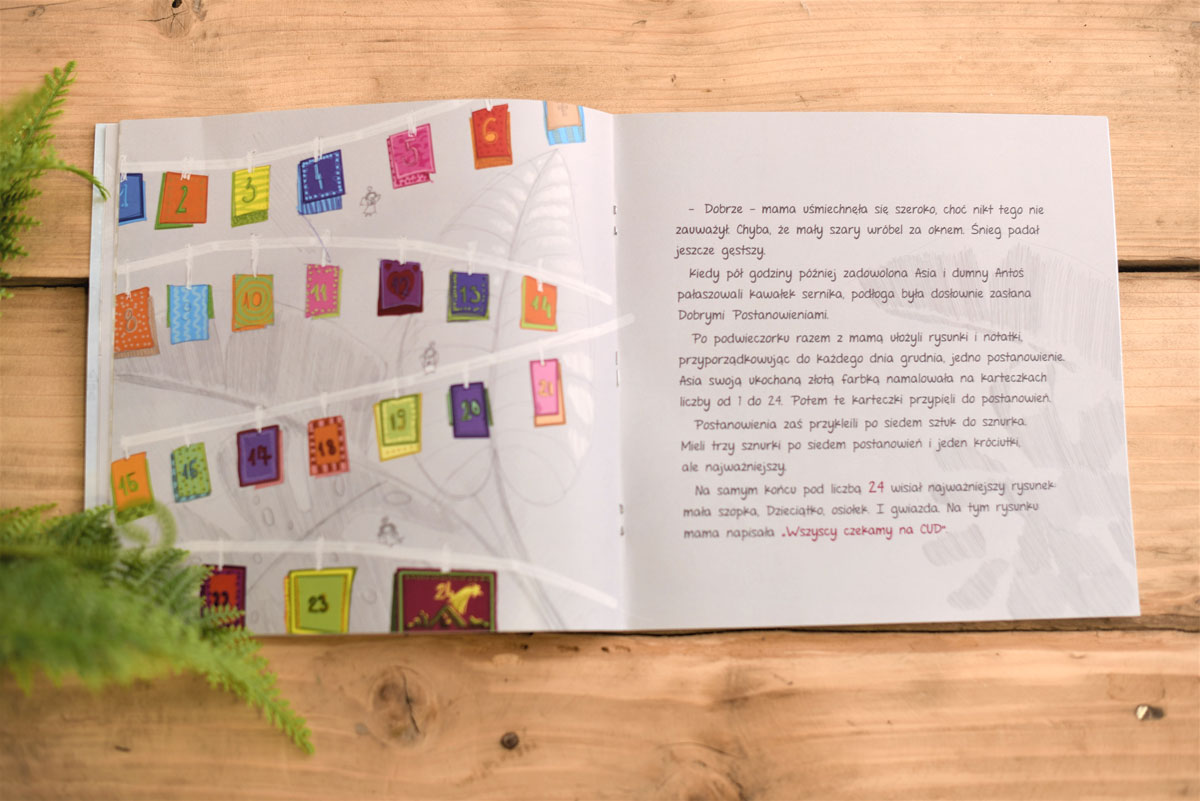 1
2
3
4
5
6
7
8
9
10
11
12
13
14
15
16
17
18
19
20
21
22
23
24
– Dobrze – mama uśmiechnęła się szeroko, choć nikt tego nie
zauważył. Chyba, że mały szary wróbel za oknem. Śnieg padał
jeszcze gęstszy.
Kiedy pół godziny później zadowolona Asia i dumny Antoś
pałaszowali kawałek sernika, podłoga była dosłownie zasłana
Dobrymi Postanowieniami.
Po podwieczorku razem z mamą ułożyli rysunki i notatki,
przyporządkowując do każdego dnia grudnia, jedno postanowienie.
Asia swoją ukochaną złotą farbką namalowała na karteczkach
liczby od 1 do 24. Potem te karteczki przypięli do postanowień.
Postanowienia zaś przykleili po siedem sztuk do sznurka.
Mieli trzy sznurki po siedem postanowień i jeden króciutki,
ale najważniejszy.
Na samym końcu pod liczbą 24 wisiał najważniejszy rysunek:
mała szopka, Dzieciątko, osiołek. I gwiazda. Na tym rysunku
mama napisała „Wszyscy czekamy na CUD”.